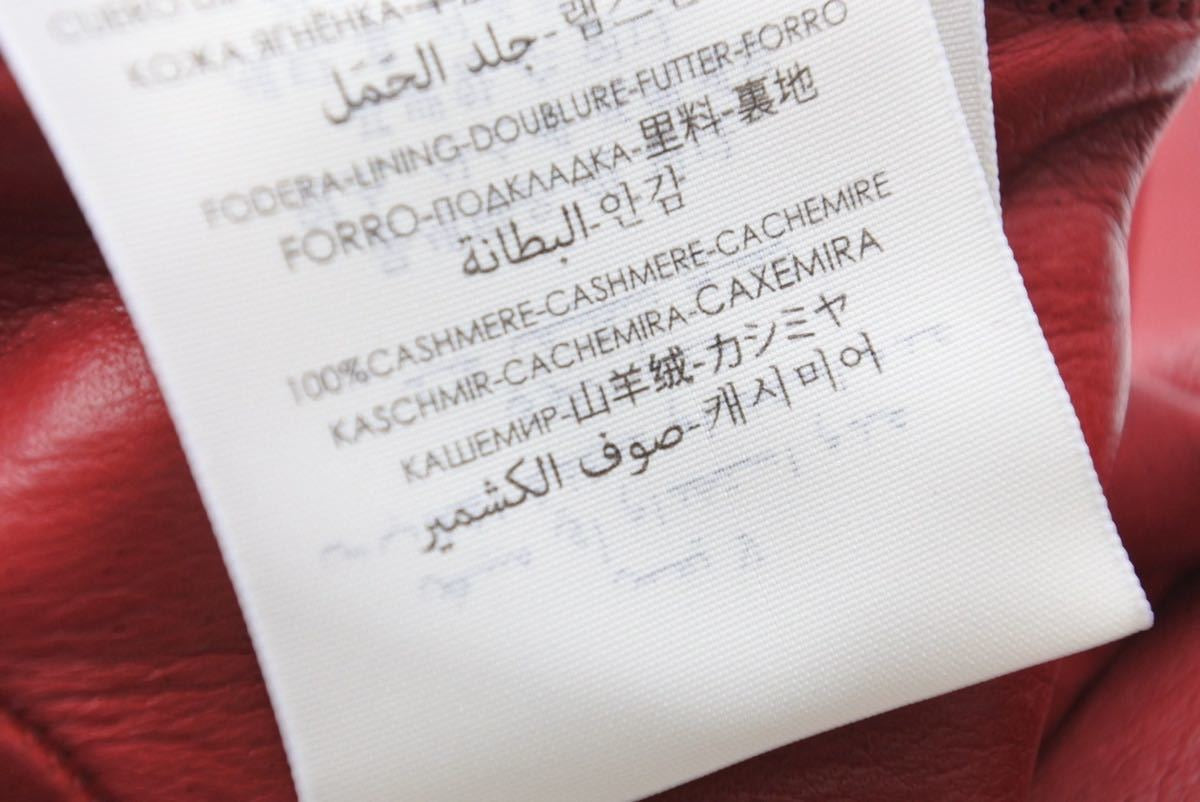 КОЖА ЯГНЁНКА-
جلد الحَمَل-램스킨
FODERA-LINING-DOUBLURE-FUTTER-FORRO
FORRO-ПОДКЛАДКА-里料-裏地
البطانة-안감
100%CASHMERE-CASHMERE-CACHEMIRE
KASCHMIR-CACHEMIRA-CAXEMIRA
КАШЕМИР-山羊绒-カシミヤ
صوف الكشمير-캐시미어